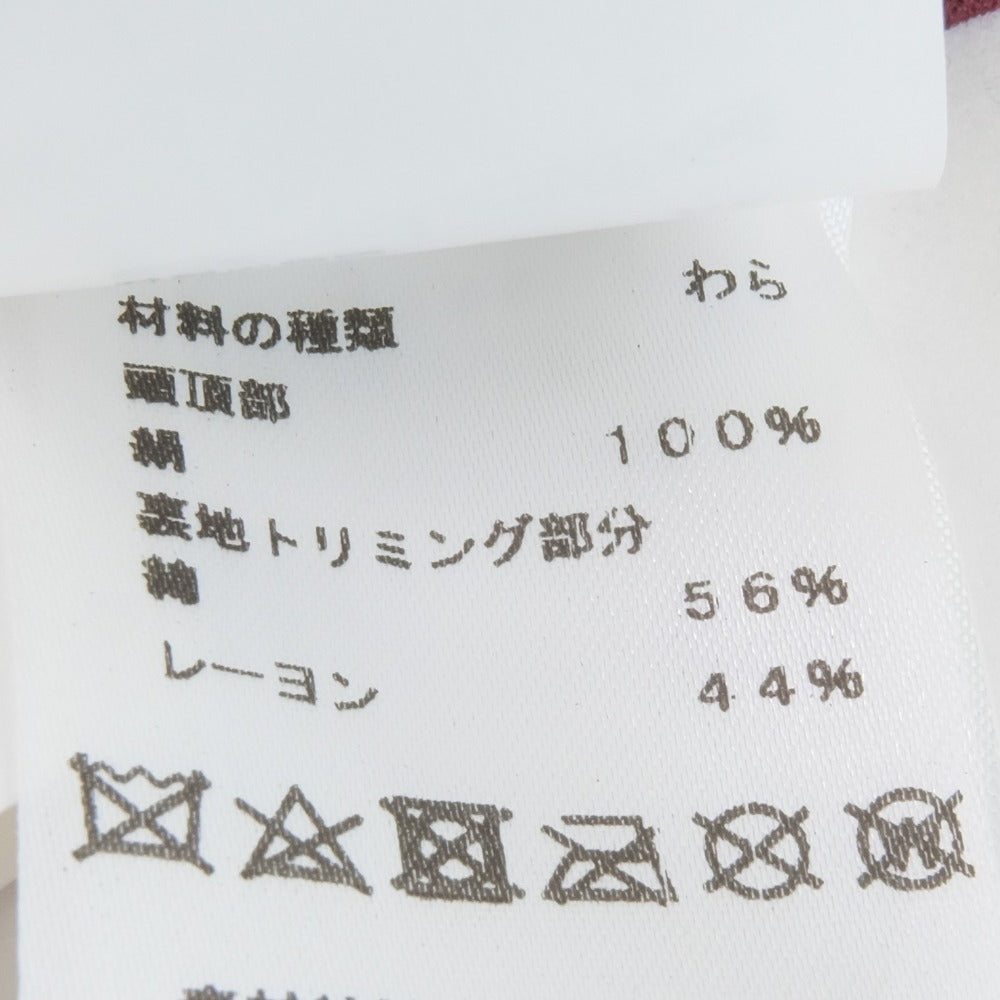 材料の種類 わら
頭頂部
絹 100%
裏地トリミング部分
綿 56%
レーヨン 44%